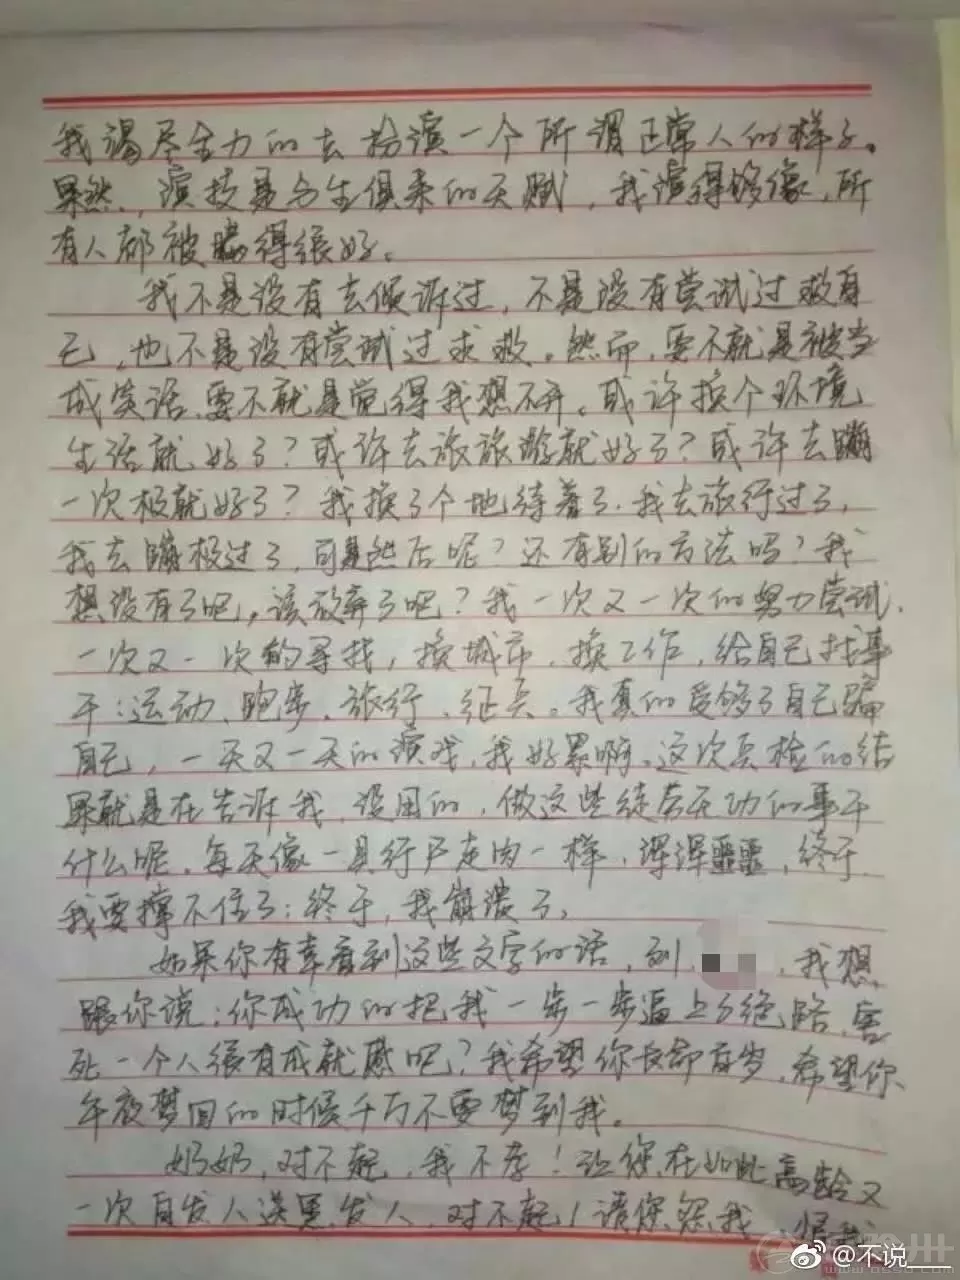 我竭尽全力的去扮演一个所谓正常人的样子。
果然，演技是与生俱来的天赋，我演得够像，所
有人都被瞒得很好。
我不是没有去倾诉过，不是没有尝试过救自
己，也不是没有尝试过求救。然而，要不就是被当
成笑话，要不就是觉得我想不开。或许换个环境
生活就好了？或许去旅旅游就好了？或许去蹦
一次极就好了？我换了个地待着了，我去旅行过了，
我去蹦极过了，可是然后呢？还有别的方法吗？我
想没有了吧。该放弃了吧？我一次又一次的努力尝试，
一次又一次的寻找，换城市、换工作，给自己找事
干：运动、跑步、旅行、征兵。我真的受够了自己骗
自己，一天又一天的演戏，我好累啊。这次兵检的结
果就是在告诉我，没用的，做这些徒劳无功的事干
什么呢。每天像一具行尸走肉一样，浑浑噩噩，终于，
我要撑不住了；终于，我崩溃了。
如果你有幸看到这些文字的话，刘，我想
跟你说：你成功的把我一步一步逼上了绝路，害
死一个人很有成就感吧？我希望你长命百岁，希望你
午夜梦回的时候千万不要梦到我。
奶奶，对不起，我不孝！让您在如此高龄又
一次白发人送黑发人，对不起！请您怨我，恨我
@不说___